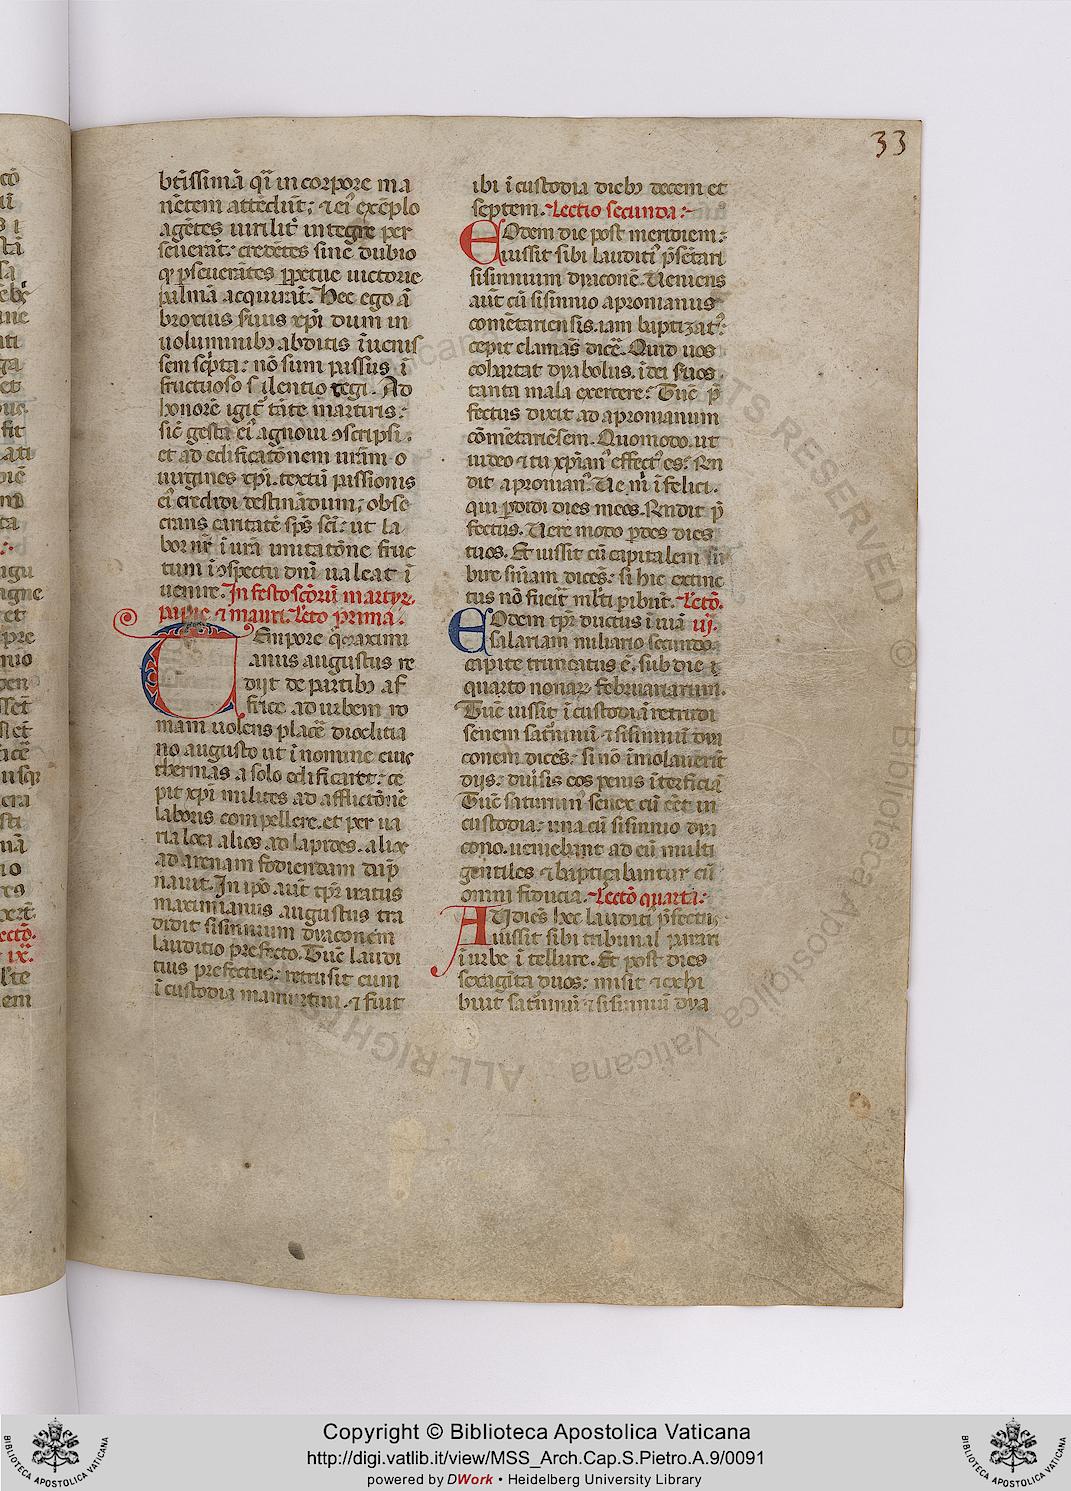 33
bt̃issimã qui in corpore ma
nẽtem attẽdũt; ⁊ eiꝰ exẽplo
agẽtes uirilit᷑ integre per
seuerãt: credẽtes sine dubio
ꝙ p̱seuerãtes p̱petue uictorie
palmã acquirãt. Hec ego ã
brosius suus xp̃i dum in
uoluminibꝫ abditis ĩuenis
sem scͥpta: nõ sum passus ĩ
fructuoso silentio tegi. Ad
honorẽ igit᷑ tãte martiris:
sic̃ gesta eiꝰ agnoui ꝯscripsi.
et ad edificatõnem urãm o
uirgines xp̃i. textũ passionis
eiꝰ credidi destinãdum; obse
crans caritatẽ sp̃s sc̃i: ut la
bor nr̃ ĩ urã imitatõne fruc
tum ĩ ꝯspectu dñi ualeat ĩ
uenire. In festo sc̃orũ martyr.
papie ⁊ mauri. Lc̃to prima.
TEmpore q̃ maximi
anus augustus re
dijt de partibꝫ af
frice ad urbem ro
mam uolens placẽ dioclitia
no augusto ut ĩ nomine eius
thermas a solo edificaret: ce
pit xp̃i milites ad afflictõnẽ
laboris compellere. et per ua
ria loca alios ad lapides. alios
ad arenam fodiendam dãp
nauit. In ip̃o aut̃ tp̃r iratus
maximianus augustus tra
didit sisinnium diaconem
lauditio prefecto. Tũc laudi
tius prefectus: retrusit eum
ĩ custodia mamurtini. ⁊ fuit
ibi ĩ custodia diebꝫ decem et
septem. Lectio secunda:
EOdem die post meridiem:
iussit sibi lauditiꝰ p̃sẽtari
sisinnium diaconẽ. Ueniens
aut̃ cũ sisinnio apronianus
comẽtariensis. iam baptizatꝰ:
cepit clamãs dicẽ. Quid uos
cohartat dyabolus. ĩ dei suos
tanta mala exercere? Tũc p̃
fectus dixit ad apronianum
cõmẽtariẽsem. Quomodo. ut
uideo ⁊ tu xp̃ianꝰ effectꝰ es? Rñ
dit apronianꝰ. Ue m̃ ĩfelici.
qui p̱didi dies meos. Rñdit p̃
fectus. Uere modo p̱des dies
tuos. Et iussit eũ capitalem su
bire sñiam dicẽs: si hic extinc
tus nõ fuerit ml̃ti pibũt. Lc̃tõ.
EOdem tp̃r ductus ĩ uiã iij.
salariam miliario secundo.
capite truncatus ẽ. sub die ĩ
quarto nonarꝝ februariarum.
Tũc iussit ĩ custodiã retrudi
senem saturñinũ ⁊ sisinniũ dia
conem dicẽs: si nõ ĩmolauerit
dijs: diuisis eos penis ĩterficiã
Tũc saturninꝰ senex cũ eẽt in
custodia: una cũ sisinnio dia
cono. ueniebant ad eũ multi
gentiles ⁊ baptiçabantur cũ
omni fiducia. Lectõ quarta:
AUdiẽs hec lauditiꝰ p̃fectus
iussit sibi tribunal parari
ĩ urbe ĩ tellure. Et post dies
sexagĩta duos: misit ⁊ exhi
buit sat᷑ninũ ⁊ sisinniũ dya
Copyright © Biblioteca Apostolica Vaticana
http://digi.vatlib.it/view/MSS_Arch.Cap.S.Pietro.A.9/0091
powered by DWork • Heidelberg University Library